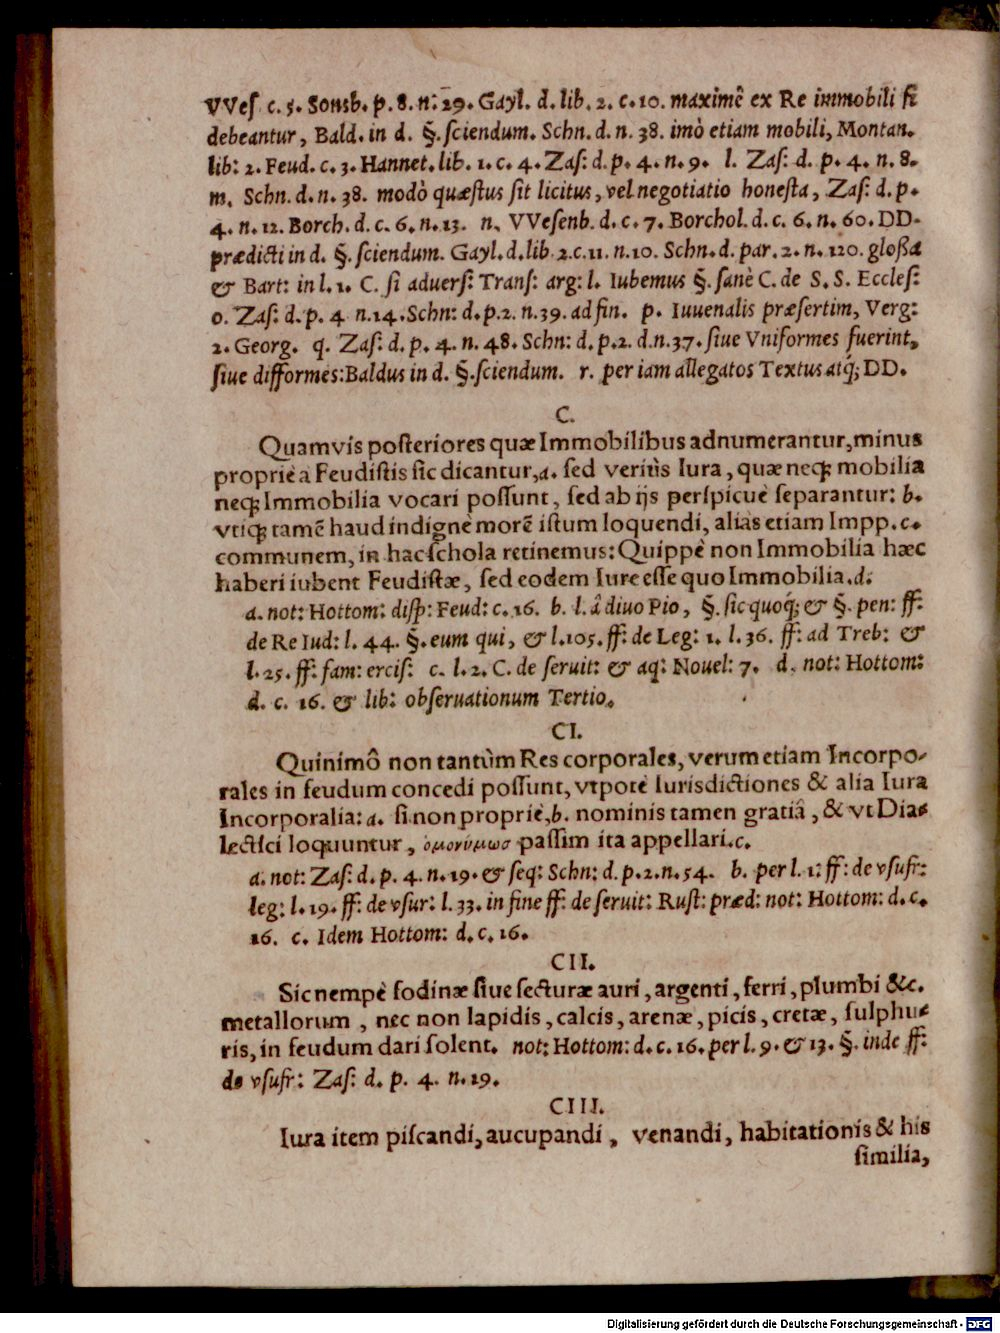 VVeſ c. 5. Sonsb. p. 8. n: 29. Gayl. d. lib. 2. c. 10. maximè ex Re immobili ſi
debeantur, Bald. in d. §. ſciendum. Schn. d. n. 38. imò etiam mobili, Montan.
lib: 2. Feud. c. 3. Hannet. lib. 1. c. 4. Zaſ: d. p. 4. n. 9. l. Zaſ: d. p. 4. n. 8.
m. Schn. d. n. 38. modò quæſtus ſit licitus, vel negotiatio honeſta, Zaſ: d. p.
4. n. 12. Borch. d. c. 6. n. 13. n. VVeſenb. d. c. 7. Borchol. d. c. 6. n. 60. DD.
prædicti in d. §. ſciendum. Gayl. d. lib. 2. c. 11. n. 10. Schn. d. par. 2. n. 120. gloßa
& Bart: in l. 1. C. ſi aduerſ: Tranſ: arg: l. Iubemus §. ſanè C. de S. S. Eccleſ:
o. Zaſ: d. p. 4 n. 14. Schn: d. p. 2. n. 39. ad fin. p. Iuuenalis præſertim, Verg:
2. Georg. q. Zaſ: d. p. 4. n. 48. Schn: d. p. 2. d. n. 37. ſiue Vniformes fuerint,
ſiue difformes: Baldus in d. §. ſciendum. r. per iam allegatos Textus atq́; DD.
C.
Quamvis poſteriores quæ Immobilibus adnumerantur, minus
propriè a Feudiſtis ſic dicantur, a. ſed veriùs Iura, quæ neq; mobilia
neq; Immobilia vocari poſſunt, ſed ab ijs perſpicuè ſeparantur: b.
vtiq; tamē haud indignè morē iſtum loquendi, aliàs etiam Impp. c.
communem, in hac ſchola retinemus: Quippè non Immobilia hæc
haberi iubent Feudiſtæ, ſed eodem Iure eſſe quo Immobilia. d.
a. not: Hottom: diſp: Feud: c. 16. b. l. â diuo Pio, §. ſic quoq́; & §. pen: ff:
de Re Iud: l. 44. §. eum qui, & l. 105. ff: de Leg: 1. l. 36. ff: ad Treb: &
l. 25. ff: fam: erciſ: c. l. 2. C. de ſeruit: & aq: Nouel: 7. d. not: Hottom:
d. c. 16. & lib: obſeruationum Tertio.
CI.
Quinimô non tantùm Res corporales, verum etiam Incorpo-
rales in feudum concedi poſſunt, vtpotè Iurisdictiones & alia Iura
Incorporalia: a. ſi non propriè, b. nominis tamen gratiâ, & vt Dia-
lectici loquuntur, ὁμονύμωσ paſſim ita appellari. c.
a. not: Zaſ: d. p. 4. n. 19. & ſeq: Schn: d. p. 2. n. 54. b. per l. 1: ff: de vſufr:
leg: l. 19. ff: de vſur: l. 33. in fine ff: de ſeruit: Ruſt: præd: not: Hottom: d. c.
16. c. Idem Hottom: d. c. 16.
CII.
Sic nempè fodinæ ſiue ſecturæ auri, argenti, ferri, plumbi &c.
metallorum, nec non lapidis, calcis, arenæ, picis, cretæ, ſulphu-
ris, in feudum dari ſolent. not: Hottom: d. c. 16. per l. 9. & 13. §. inde ff:
de vſufr: Zaſ: d. p. 4. n. 19.
CIII.
Iura item piſcandi, aucupandi, venandi, habitationis & his
ſimilia,
Digitalisierung gefördert durch die Deutsche Forschungsgemeinschaft - DFG